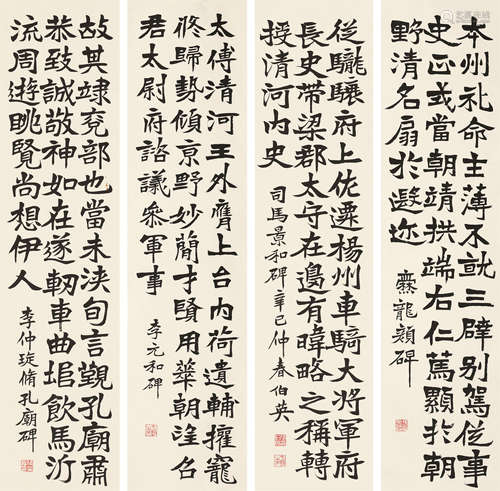 本州礼命主薄不就三辟别駕從事
史正式當朝靖拱端右仁篤顯於朝
野清名扇於遐迩
爨龍顏碑
從驤府上佐遷楊州車騎大將軍府
長史帶梁郡太守在邊有暐略之稱轉
授清河内史
司馬景和碑辛巳仲春伯英
太傅清河王外膺上台内荷遺輔擢寵
脩歸勢傾京野妙簡才賢用華朝望召
君太尉府諮議叅軍事
李元和碑
故其逮兖部也當未浹旬言觐孔廟肅
恭致誠敬神如在遂軔車曲阜飲馬沂
流周遊眺覽尚想伊人
李仲琁脩孔廟碑